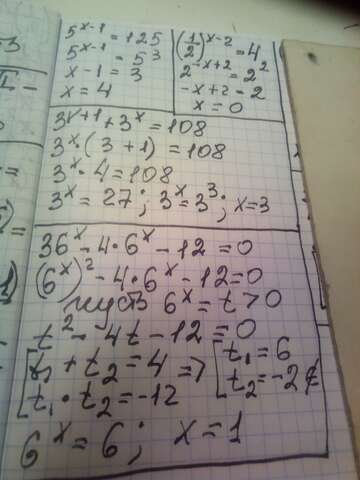 5^(x-1) = 125
5^(x-1) = 5^3
x-1 = 3
x = 4
(1/2)^(x-2) = 4
2^(-x+2) = 2^2
-x+2 = 2
x = 0
3^(x+1) + 3^x = 108
3^x · (3+1) = 108
3^x · 4 = 108
3^x = 27; 3^x = 3^3; x = 3
36^x - 4·6^x - 12 = 0
(6^x)^2 - 4·6^x - 12 = 0
пусть 6^x = t > 0
t^2 - 4t - 12 = 0
[t₁ + t₂ = 4 => [t₁ = 6
[t₁ · t₂ = -12 [t₂ = -2 ∉
6^x = 6; x = 1